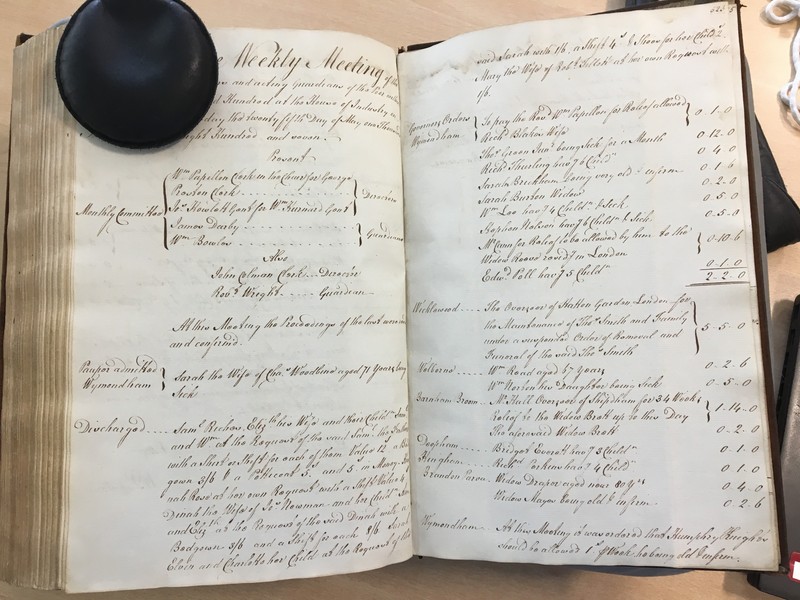 Weekly Meeting of the
and acting Guardians of the
Hundred at the House of Industry
day the twenty fifth Day of May one Thou
Eight Hundred and seven
Present
Monthly Committee
Wm Papillon Clerk in the Chair for George
Preston Clerk
Jos. Howlett Gent for Wm Gent
James Darby
Wm Bowles
Directors
Guardians
Also
John Colman Clerk Director
Robt Wright Guardian
At this Meeting the Proceedings of the last were
and confirmd.
Pauper admitted
Wymondham
Sarah the Wife of Chas. Woodbine aged 71 Years being
Sick
Discharged Saml. Eliz. his Wife and their Childn.
and Wm at the Request of the said Saml.
with a Shirt or Shift for each of them Value
gown 3/6 a Petticoat 5s and 5s in Money
at her own Request with a Shift Value
Dinah the Wife of Jos. Newman and her Childn.
and Eliz. at the Request of the said Dinah with a
Bedgown 3/6 and a Shift for each 3/6 Sarah
and Charlotte her Child at the Request of the
said Sarah with 1/6, a Shift 4s & Shoes for her Child 2s.
Mary the Wife of Robt. at her own Request with
1/6.
Governors Orders
Wymondham
To pay the Revd. Wm Papillon for Relief allowed
Richd. Wife 0-1-0
Thos. Green Junr. being Sick for a Month 0-12-0
Richd. Thurling hav'g 6 Childn. 0-4-0
Sarah being very old & infirm 0-1-6
Sarah Burton Widow 0-2-0
Wm Lee hav'g 4 Childn. & Sick 0-5-0
Stephen Nelson hav'g 6 Childn. & Sick 0-5-0
Mr Cann for Relief to be allowed by him to the
Widow Reeve resid'g in London 0-10-6
Edwd. Poll hav'g 5 Childn. 0-1-0
2-2-0
Wicklewood The Overseer of Hatton Garden London for
the Maintenance of Thos. Smith and Family
under a suspended Order of Removal and
Funeral of the said Thos. Smith 5-5-0
Welborne Wm Read aged 67 Years 0-2-6
Wm Norton his Daughter being Sick 0-5-0
Barnham Broom Mr. Overseer of Shipdham for 34 Weeks
Relief to the Widow Brett up to this Day 1-14-0
The aforesaid Widow Brett 0-2-0
Deopham Bridget Everett hav'g 3 Childn. 0-1-0
Hingham Richd. hav'g 4 Childn. 0-1-0
Brandon Parva Widow Draper aged near 80 Yrs 0-4-0
Widow Mayes being old & infirm 0-2-6
Wymondham At this Meeting it was ordered that Humphry
should be allowed 1s. p Week he being old & infirm.